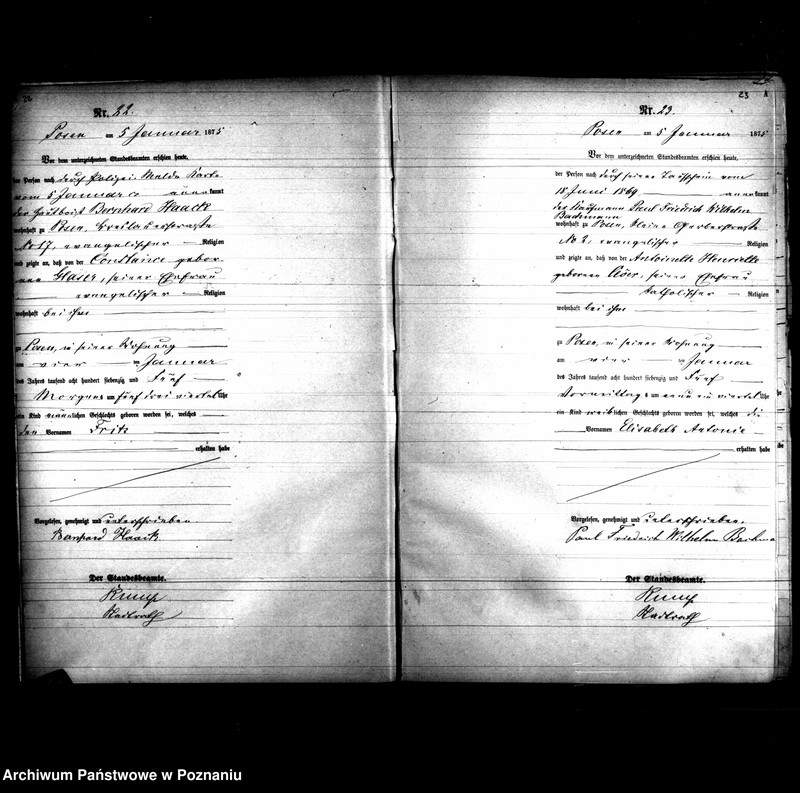 22
Nr. 22.
Posen am 5 Januar 1875
Vor dem unterzeichneten Standesbeamten erschien heute,
der Person nach durch Polizei Melde Karte
vom 5 Januar cr. anerkannt
der Hautboist Bernhard Haack
wohnhaft zu Posen, Breslauerstraße
No 17, evangelischer Religion
und zeigte an, daß von der Constance gebor-
nen Glaser, seiner Ehefrau
evangelischer Religion
wohnhaft bei ihm
zu Posen, in seiner Wohnung
am vier ten Januar
des Jahres tausend acht hundert siebenzig und Fünf
Morgens um fünf drei viertel Uhr
ein Kind männlichen Geschlechts geboren worden sei, welches
den Vornamen Fritz
erhalten habe
Vorgelesen, genehmigt und unterschrieben
Bernhard Haack.
Der Standesbeamte.
Stadtrath
23
Nr. 23.
Posen am 5 Januar 1875
Vor dem unterzeichneten Standesbeamten erschien heute,
der Person nach durch seinen Taufschein vom
18 Juni 1869 anerkannt
der Kaufmann Paul Friedrich Wilhelm
wohnhaft zu Posen, kleine Gerberstraße
No 2, evangelischer Religion
und zeigte an, daß von der Antoinette Henriette
geborenen seiner Ehefrau
katholischer Religion
wohnhaft bei ihm
zu Posen, in seiner Wohnung
am vier ten Januar
des Jahres tausend acht hundert siebenzig und Fünf
Vormittags um neun ein viertel Uhr
ein Kind weiblichen Geschlechts geboren worden sei, welches die
Vornamen Elisabeth Antonie
erhalten habe
Vorgelesen, genehmigt und unterschrieben.
Paul Friedrich Wilhelm
Der Standesbeamte.
Stadtrath
Archiwum Państwowe w Poznaniu